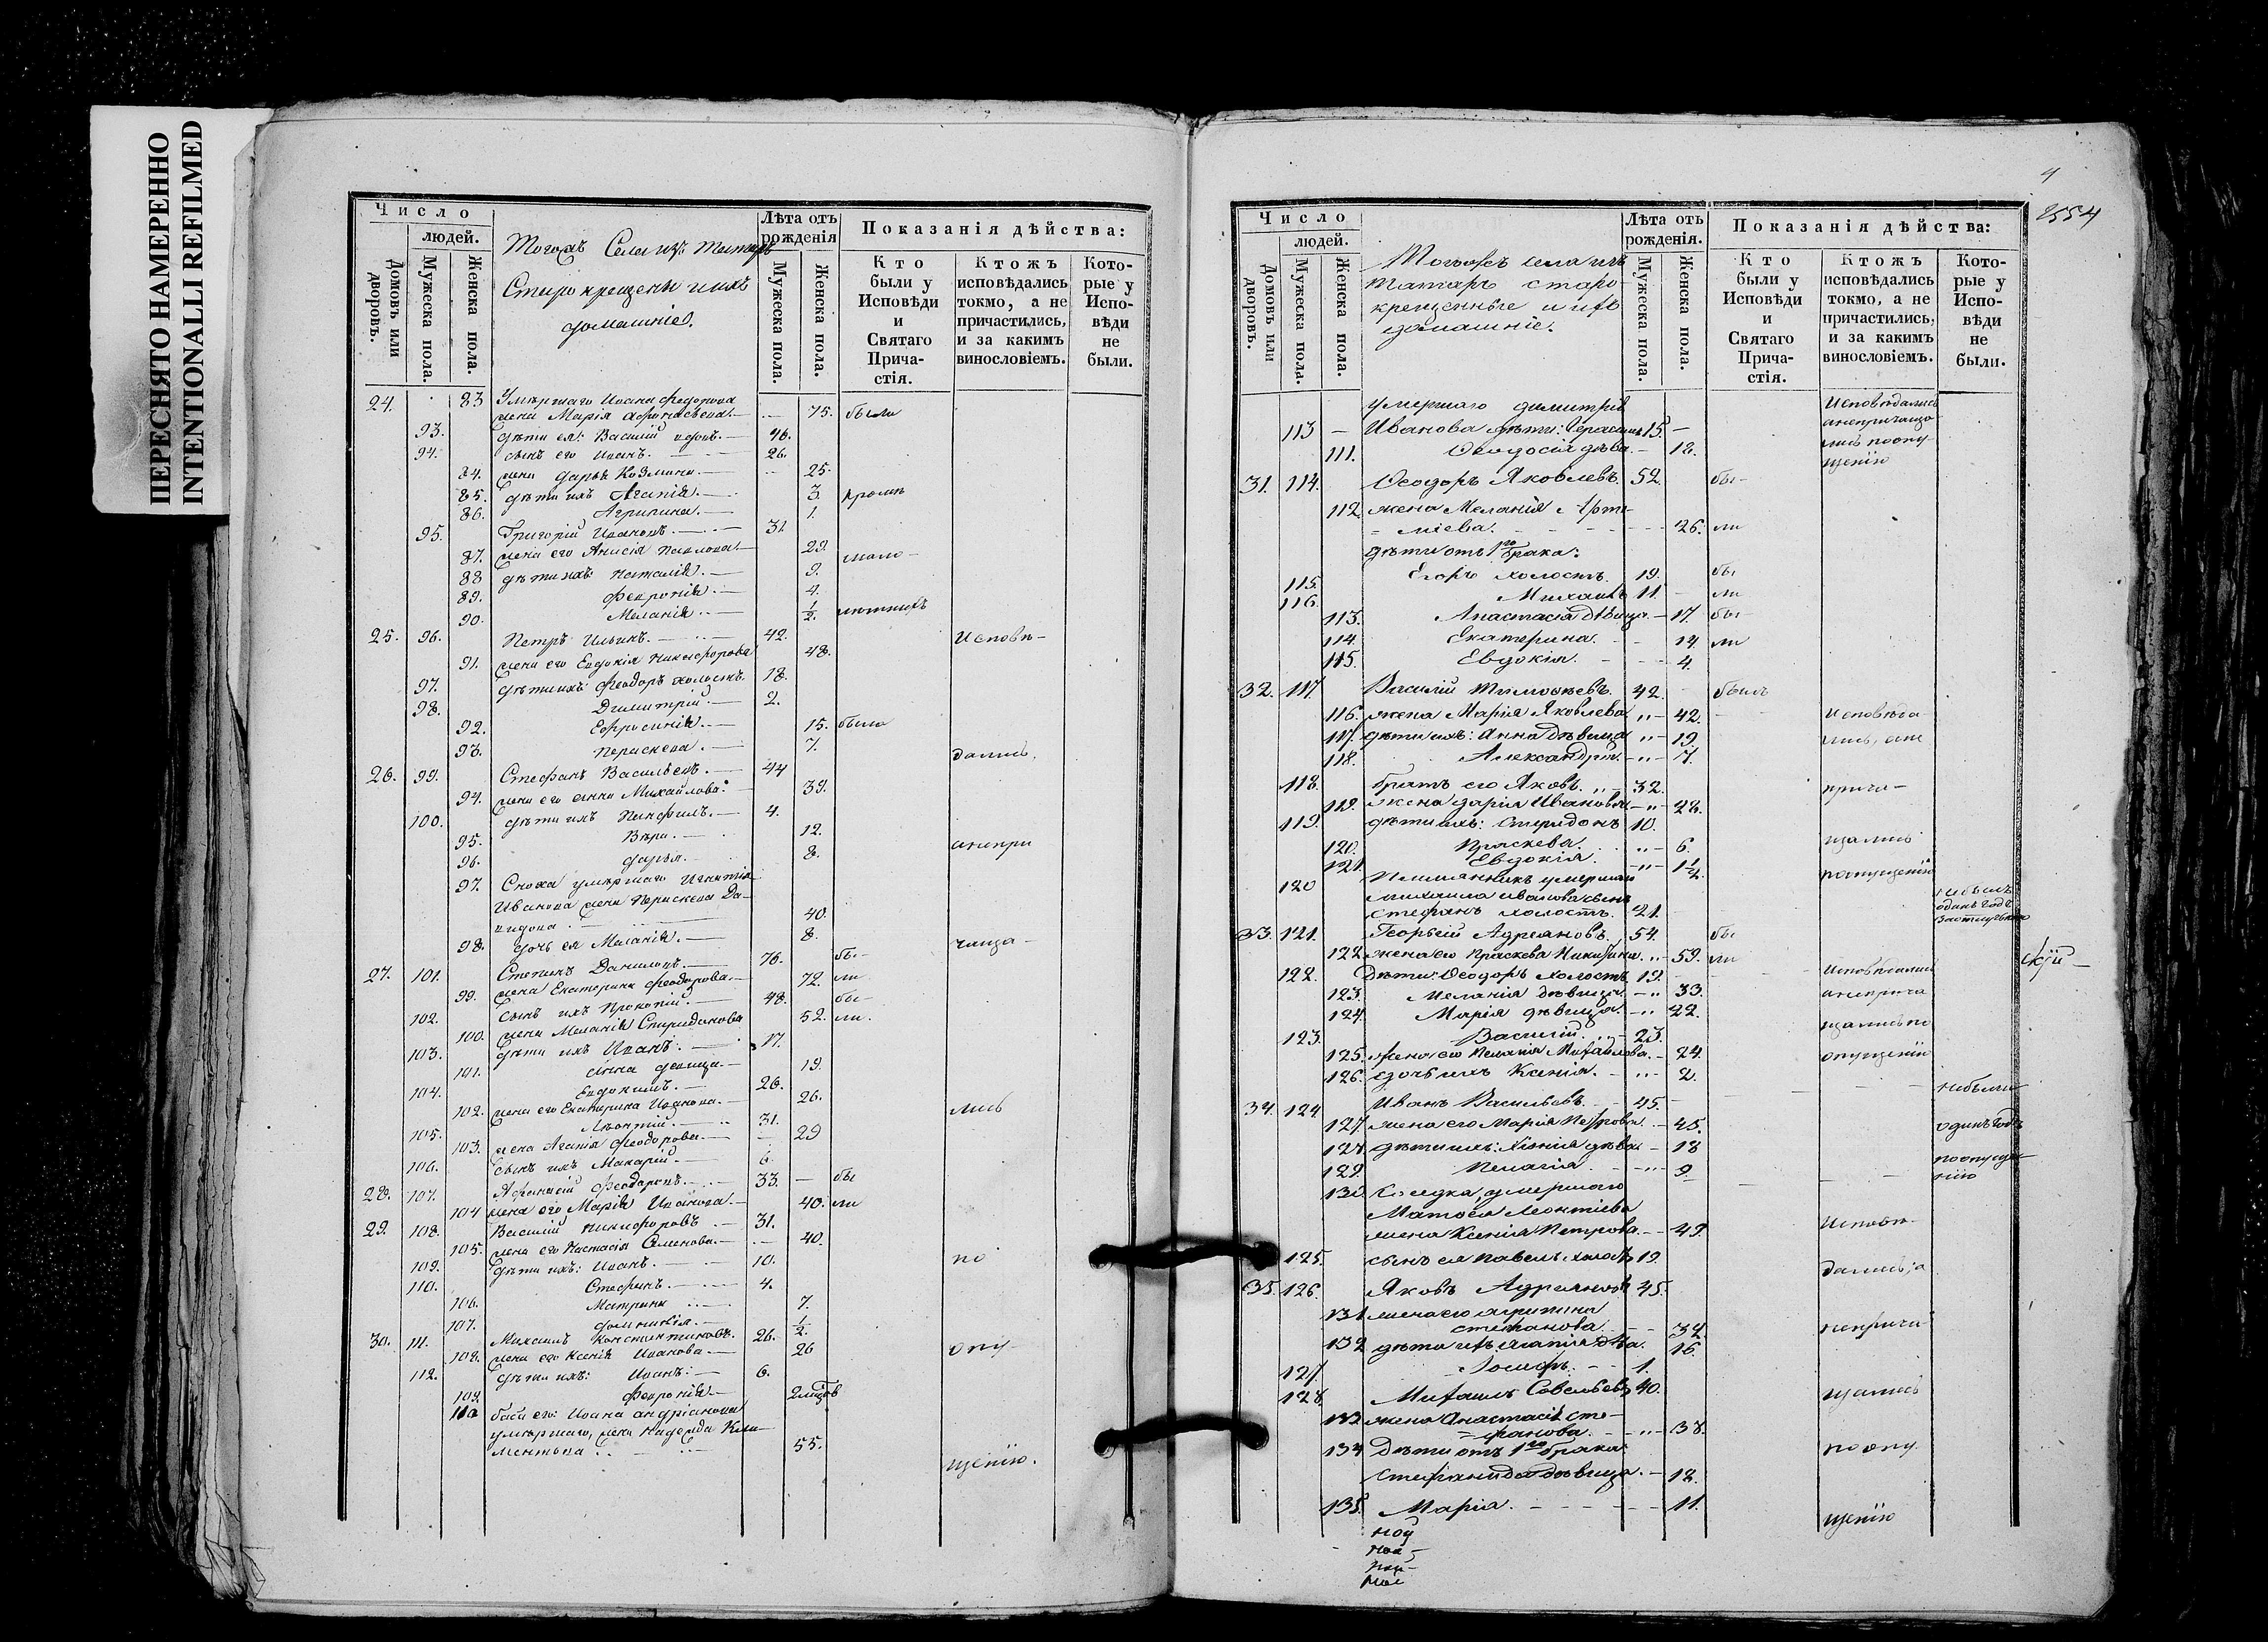 ПЕРЕСНЯТО НАМЕРЕННО
INTENTIONALLI REFILMED
Число
людей.
Домовъ или дворовъ.
Мужеска пола.
Женска пола.
Лѣта отъ рожденія
Мужеска пола.
Женска пола.
Показанія дѣйства:
Кто были у Исповѣди и Святаго Прича-стія.
Ктожъ исповѣдались токмо, а не причастились, и за какимъ винословіемъ.
Кото-рые у Испо-вѣди не были.
Тогожъ Села изъ татаръ
Старокрещены и ихъ
домашніе.
24. 83 Умершаго Иоанна Федорова
жена Марія Афанасьева. 75. были
93. дѣти ея: Василій вдов. 46.
94. сынъ его Иоанъ. 26.
84. жена Дарья Козмина. 25.
85. дѣти ихъ Агапія. 3. кромѣ
86. Агрипина. 1.
95. Григорій Ивановъ. 31.
87. жена его Анисія Павлова 29. мало-
88 дѣти ихъ: Наталія. 9.
89. Февронія. 4.
90. Меланія. 1/2. лѣтнихъ
25. 96. Петръ Ильинъ. 42. Исповѣ-
91. жена его Евдокія Никифорова 48.
97. дѣти ихъ: Феодоръ холостъ. 18.
98. Димитрій. 2.
92. Ефросинія. 15. была
93. Параскева. 7. дались,
26. 99. Стефанъ Васильевъ. 44
94. жена его Анна Михайлова. 39.
100. дѣти ихъ Панфилъ. 4.
95. Вѣра. 12. а непри
96. Дарья. 8.
97. Сноха умершаго Игнатія
Иванова жена Параскева Да-
видова. 40.
98. дочь ея Меланія. 8. чаща-
27. 101. Степанъ Даниловъ. 76. бы-
99. жена Екатерина Феодорова. 72. ли
102. сынъ ихъ Прокопій. 48. бы-
100. жена Меланія Спиридонова 52. ли.
103. дѣти ихъ Иванъ. 17.
101. Анна девица. 19.
104. Евдокимъ. 26.
102. жена его Екатерина Иванова. 26. лись
105. Леонтій. 31.
103. жена Агапія Феодорова. 29
106. сынъ ихъ Макарій. 6.
28. 107. Афанасій Феодоровъ. 33. бы
104 жена его Марія Иванова. 40. ли
29. 108. Василій Никифоровъ. 31.
105. жена его Настасія Семенова. 40.
109. дѣти ихъ: Иванъ. 10. по
110. Стефанъ. 4.
106. Матрина 7.
107. Домникія. 1/2.
30. 111. Михаилъ Константиновъ. 26.
108. жена его Ксенія Иванова. 26 опу-
112. дѣти ихъ: Иванъ. 6.
109. Февронія 2
110 баба его: Иоана Андріанова
умершаго, жена Надежда Кли-
ментьева 55. щенію.
4
2554
Число
людей.
Домовъ или дворовъ.
Мужеска пола.
Женска пола.
Лѣта отъ рожденія.
Мужеска пола.
Женска пола.
Показанія дѣйства:
Кто были у Исповѣди и Святаго Прича-стія.
Ктожъ исповѣдались токмо, а не причастились, и за какимъ винословіемъ.
Кото-рые у Испо-вѣди не были.
Тогоже села изъ
татаръ старо-
крещенные и ихъ
домашніе.
умершаго Димитрія Исповѣдались
113 Иванова дѣти: Герасимъ 15. а непричаща
111. Феодосія дѣва. 12. лись поопу
щенію
31. 114. Феодоръ Яковлевъ. 52. бы-
112. жена Меланія Арте-
міева. 26. ли
дѣти отъ 1го брака:
115. Егоръ холостъ. 19. бы
116. Михаилъ 11. ли
113. Анастасія дѣвица. 17. бы-
114. Екатерина. 14. ли
115. Евдокія. 4.
32. 117 Василій Тимофеевъ. 42. былъ
116. жена Марія Яковлева 42. Исповѣда
117. дѣти ихъ: Анна дѣвица 19. лись, а не
118. Александра. 7.
118. братъ его Яковъ. 32. прича-
119. жена Дарія Иванова 28.
119. дѣти ихъ: Спиридонъ 10.
120. Праскева. 6. щались
121. Евдокія. 1 1/2.
120 Племянникъ умершаго поопущенію
Михаила Иванова сынъ небылъ
Стефанъ холостъ. 21. одинъ годъ
33. 121. Георгій Адреяновъ. 54. бы
122. жена его Праскева Никитина 59. ли
122. Дѣти: Феодоръ холостъ 19. Исповѣдались
123. Меланія дѣвица. 33. а неприча
124. Марія дѣвица. 22.
123. Василій. 23. щались по
125. жена его Пелагія Михайлова. 24. опущенію
126. дочь ихъ Ксенія. 2.
небыли
34. 124 Иванъ Васильевъ. 45.
127. жена его Марія Петрова. 45. одинъ годъ
128 дѣти ихъ: Ксенія дѣва 18
129. Пелагія. 9. поопуще
130. Соседка, умершаго нію
Матфея Леонтіева
жена Ксенія Петрова. 49. Исповѣ-
125. сынъ ея Павелъ холостъ 19. дались; а
35. 126. Яковъ Адреяновъ 45.
131 жена его Агрипина
Степанова 34. неприча-
132 дѣти ихъ Агапія дѣва. 16.
127. Іосифъ. 1.
128. Михаилъ Савельевъ 40. щались
133 жена Анастасія Сте-
фанова. 38.
134 Дѣти отъ 1го брака: поопу
Стефанида дѣвица. 12.
135. Марія. 11. щенію